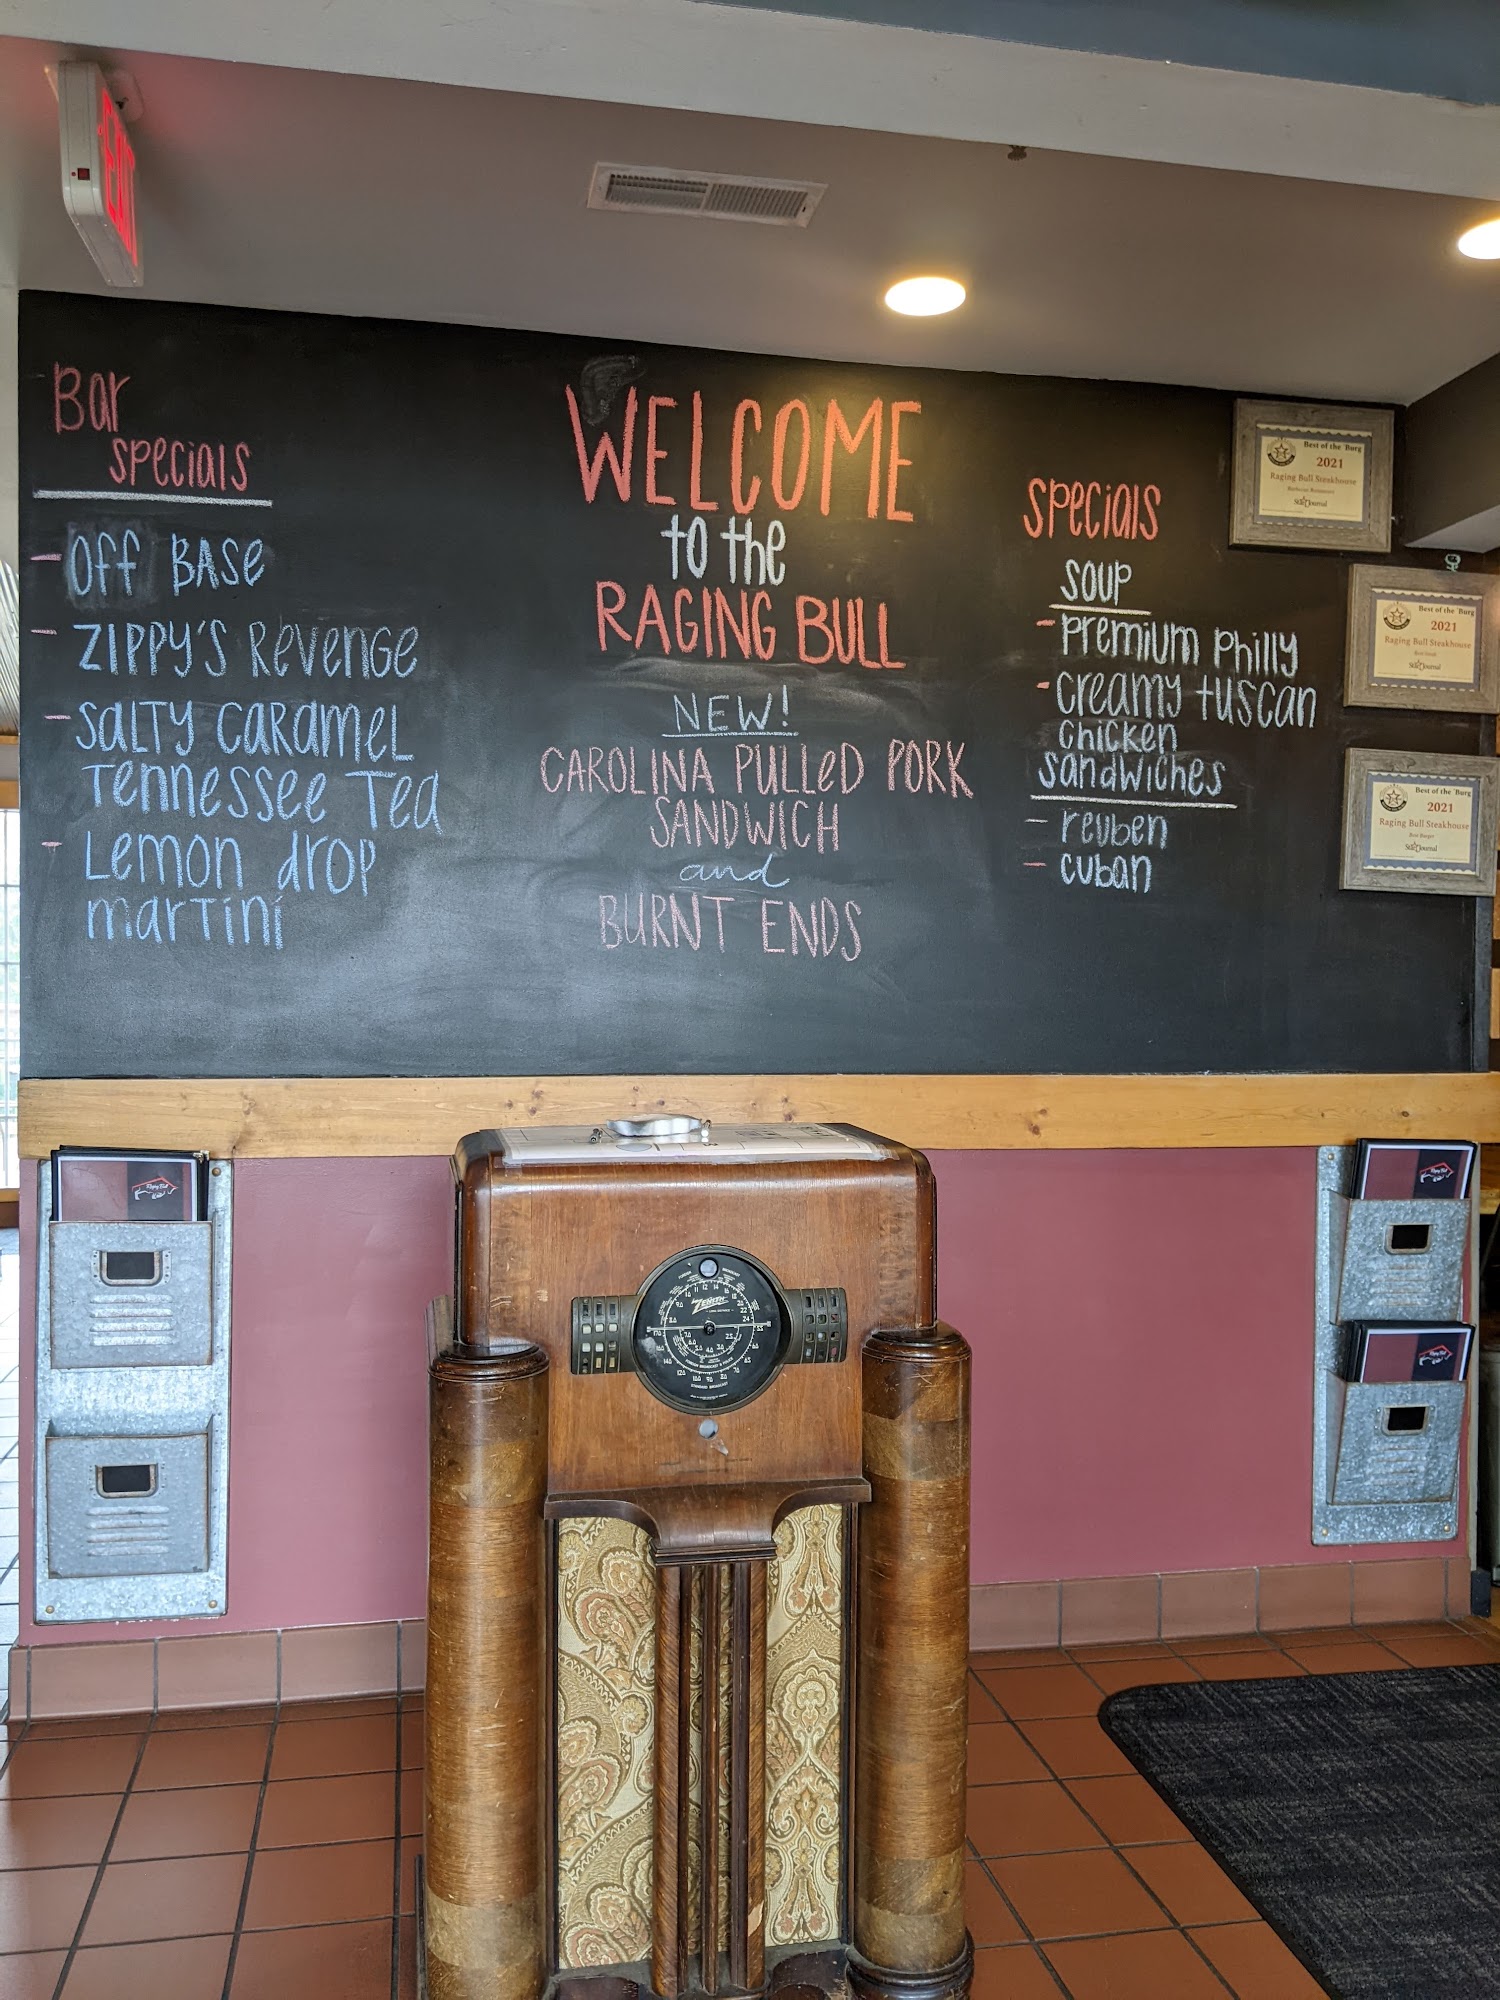 EXIT
Bar
specials
- Off BASe
- ZIPPY'S ReVenGe
- SaLTY CaRameL
Tennessee Tea
- Lemon drop
marTini
WELCOME
to the
RAGING BULL
NEW!
CAROLINA PULLeD PORK
SANDWICH
and
BURNT ENDS
specials
soup
- premium philly
- creamy tuscan
chicken
sandwiches
- reuben
- cuban
Best of the 'Burg
2021
Raging Bull Steakhouse
Star Journal
Best of the 'Burg
2021
Raging Bull Steakhouse
Best Steak
Star Journal
Best of the 'Burg
2021
Raging Bull Steakhouse
Best Burger
Star Journal
Raging Bull
Raging Bull
Raging Bull
ZENITH
FOREIGN BROADCAST & POLICE
STANDARD BROADCAST